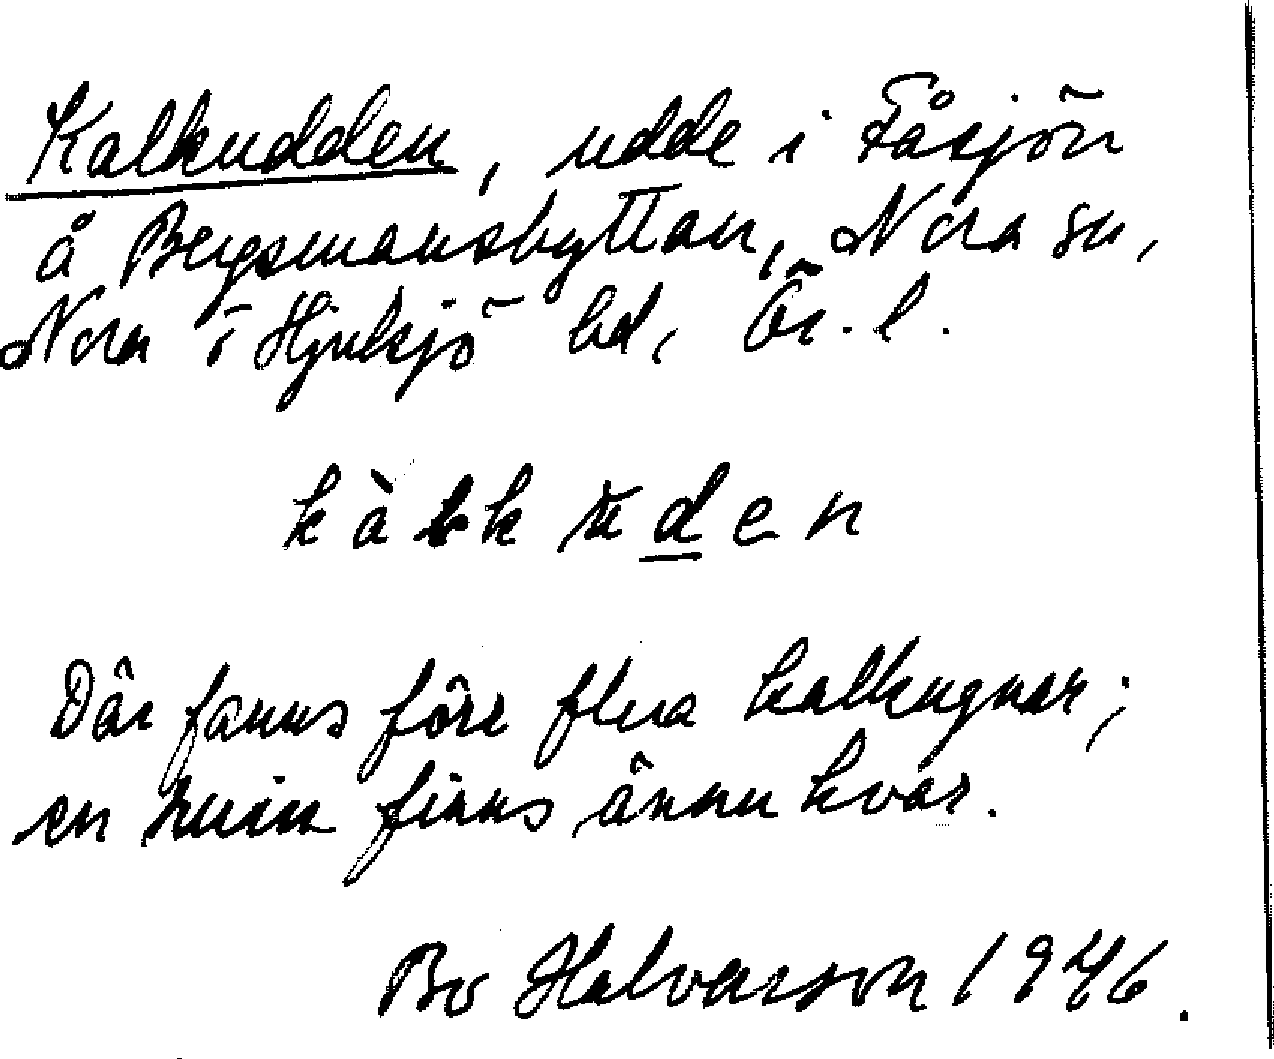 Kalkudden, udde i Fåsjön
å Bergsmanshyttan, Nora sn,
Nora o Hjulsjö bd, Ör. l.
kàlkuden
Där fanns förr flera kalkugnar;
en ruin finns ännu kvar.
Bo Halvarson 1946.